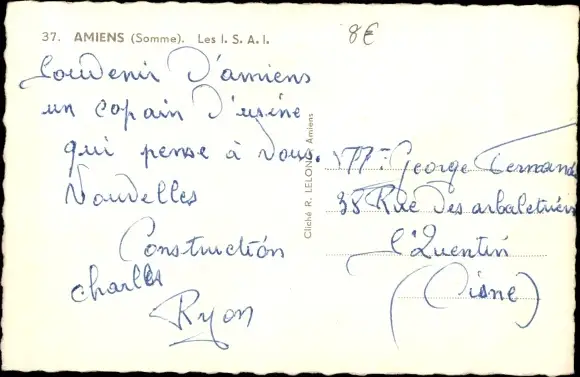 37. AMIENS (Somme). Les I. S. A. I.
8€
Souvenir D'amiens
un copain D'usine
qui pense à vous.
Nouvelles
Construction
charles
Ryon
Cliché R. LELONG Amiens
Mr George
38 Rue Des arbaletriers
St Quentin
(Aisne)